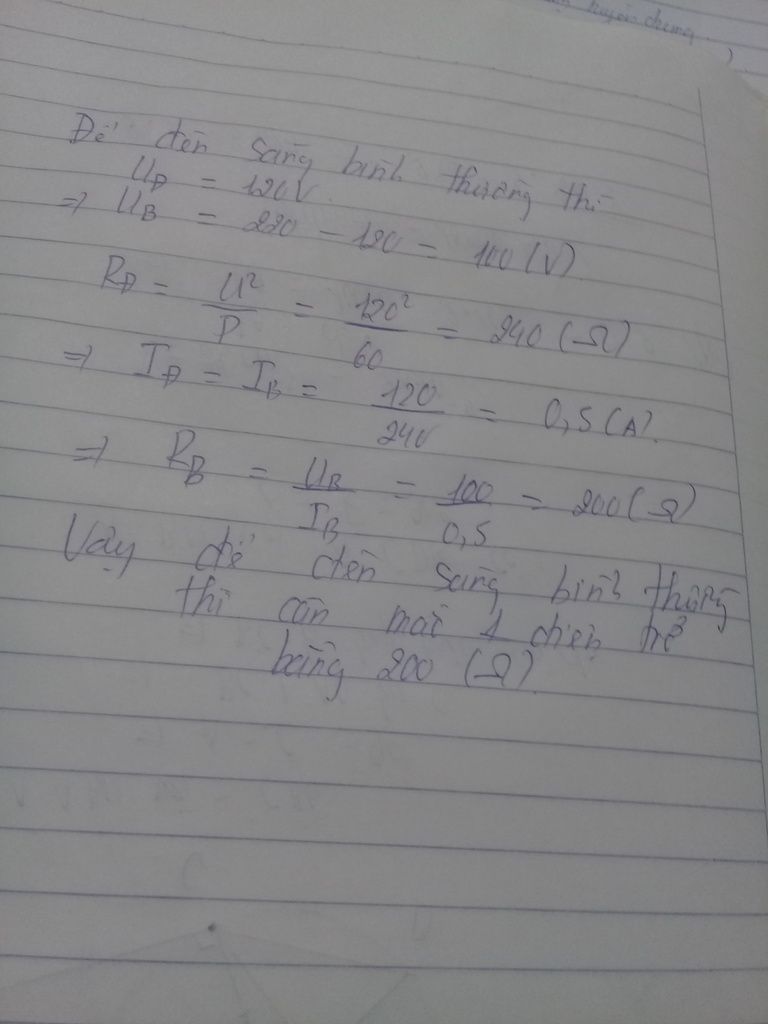 Để đèn sáng bình thường thì
UĐ = 120V.
⇒ UB = 220 - 120 = 100 (V)
RĐ = U²/P = 120²/60 = 240 (Ω)
⇒ IĐ = IB = 120/240 = 0,5 (A).
⇒ RB = UB/IB = 100/0,5 = 200 (Ω)
Vậy để đèn sáng bình thường
thì cần mắc 1 điện trở
bằng 200 (Ω)